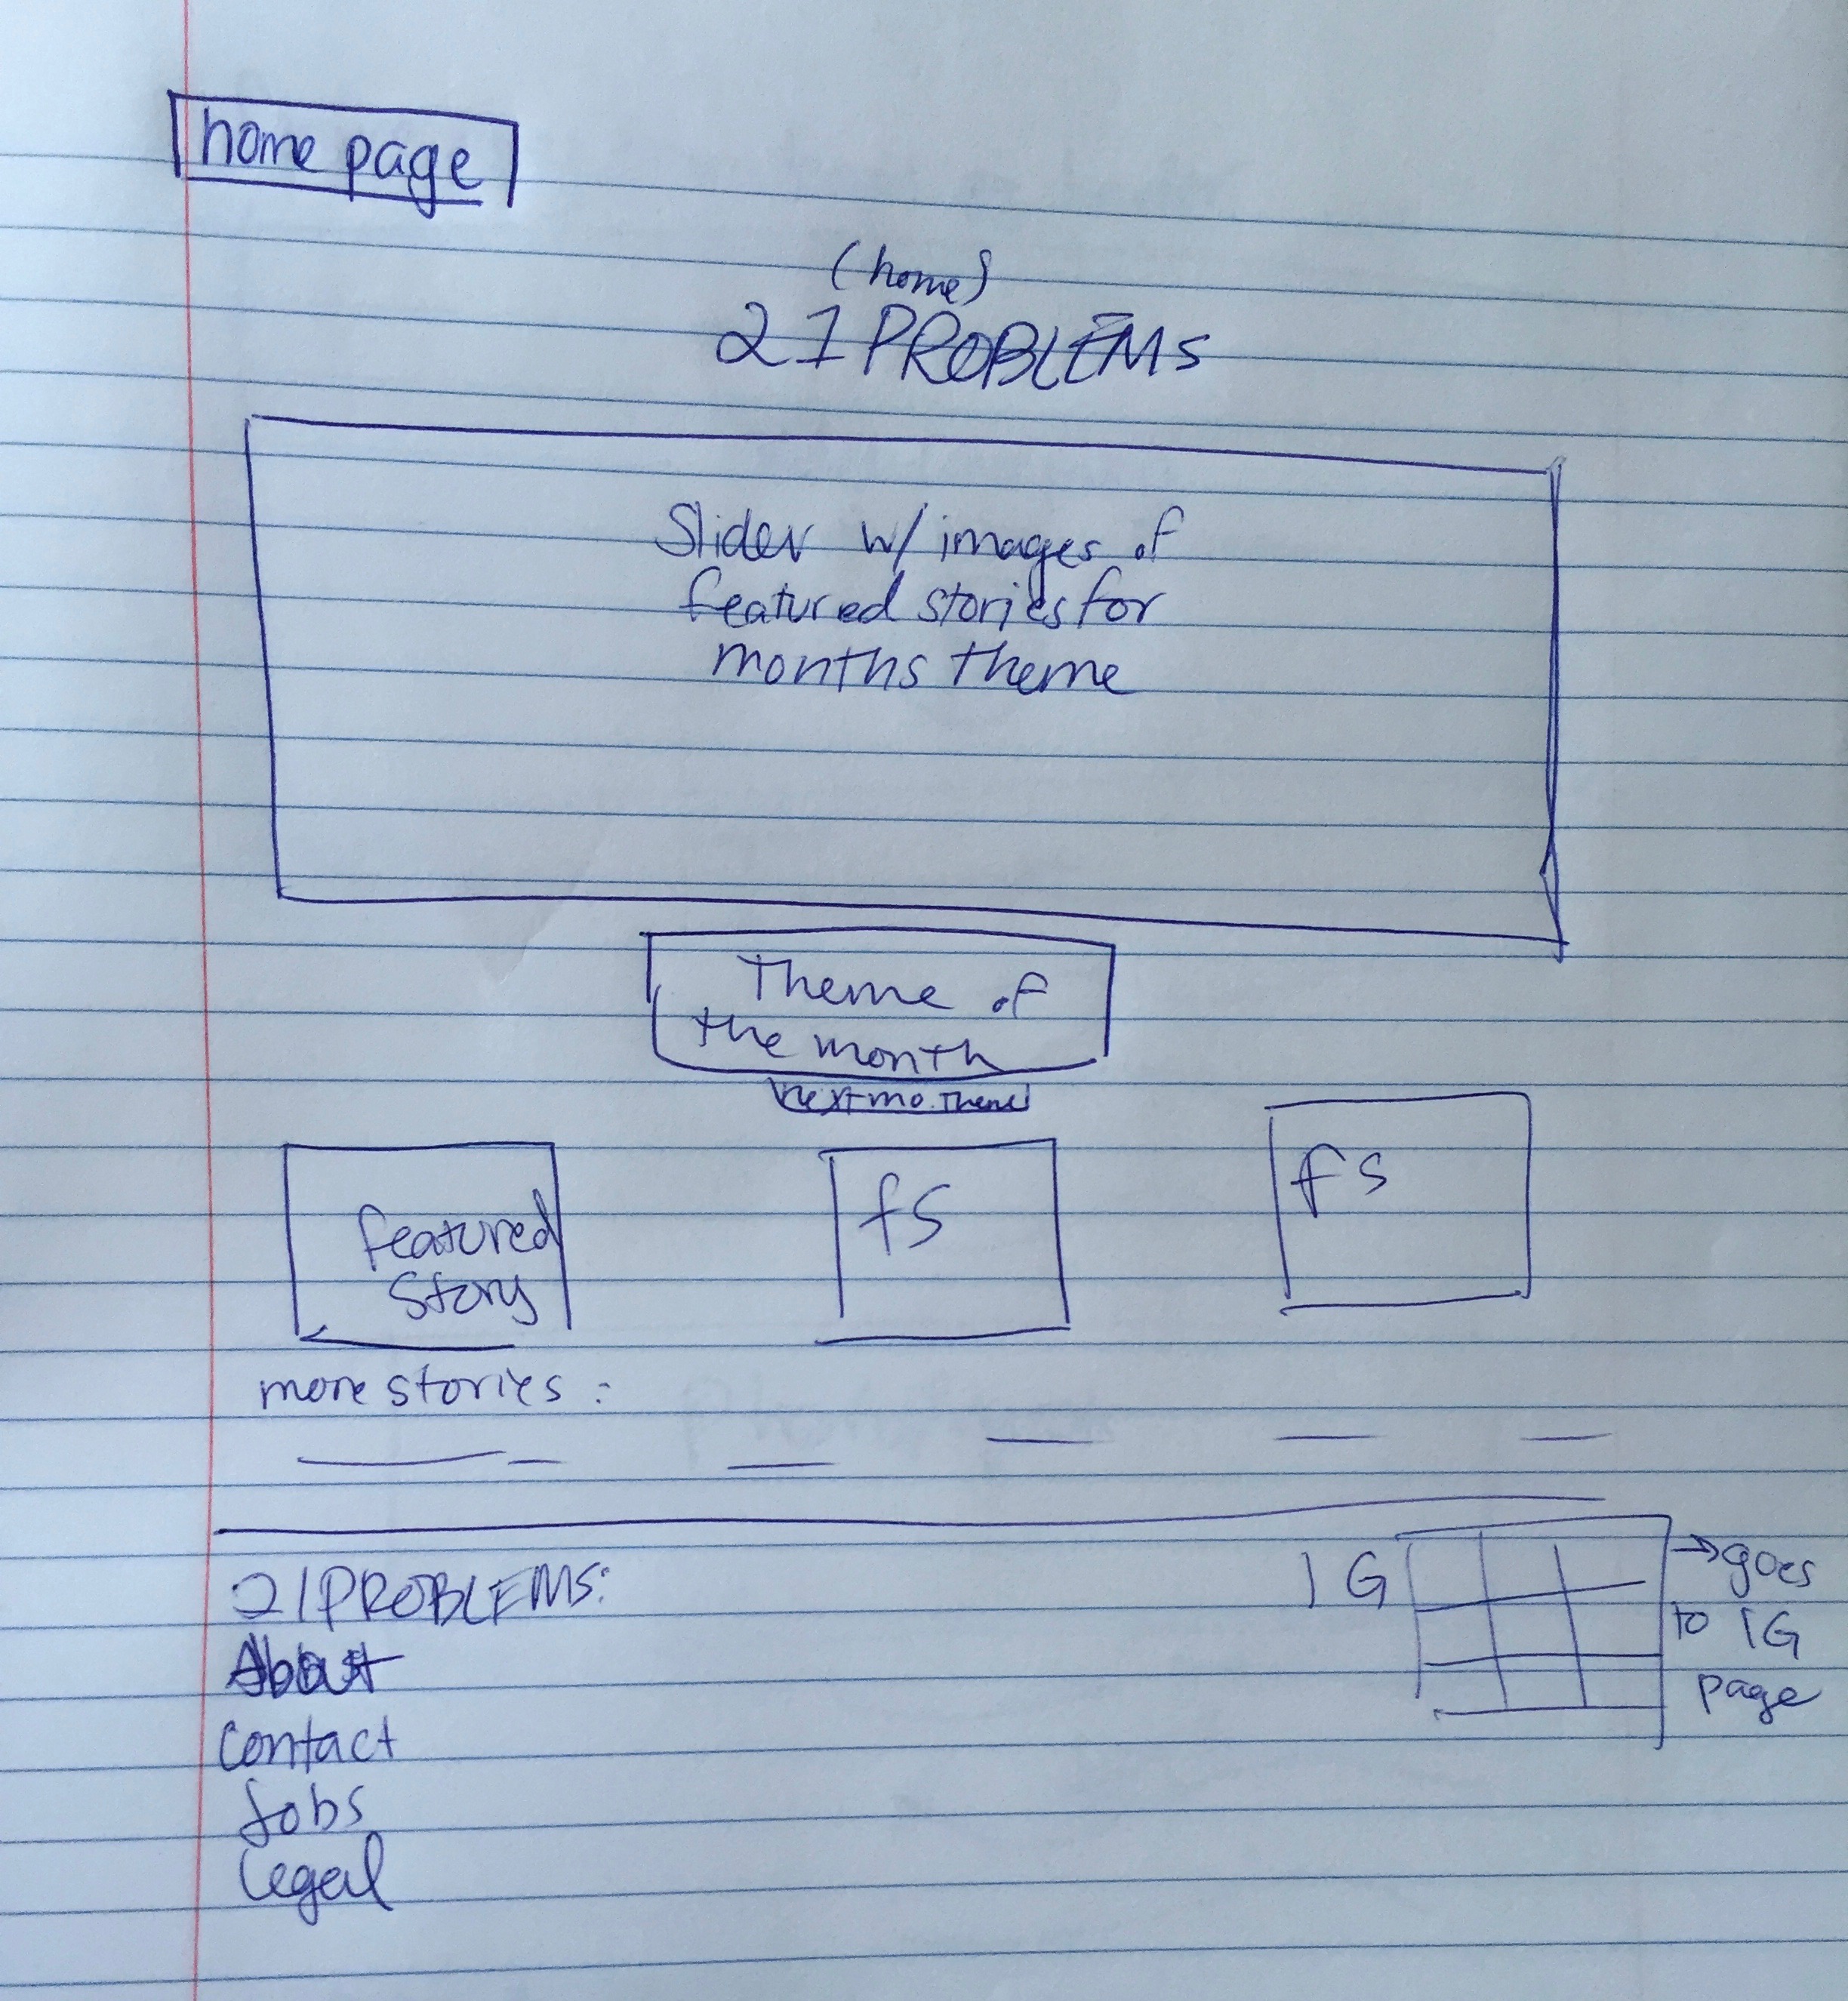 home page
(home)
21PROBLEMS
Slider w/ images of
featured stories for
months theme
Theme of
the month
Next mo. Theme
featured
story
fs
fs
more stories:
21PROBLEMS:
About
Contact
Jobs
Legal
IG
→goes
to IG
page